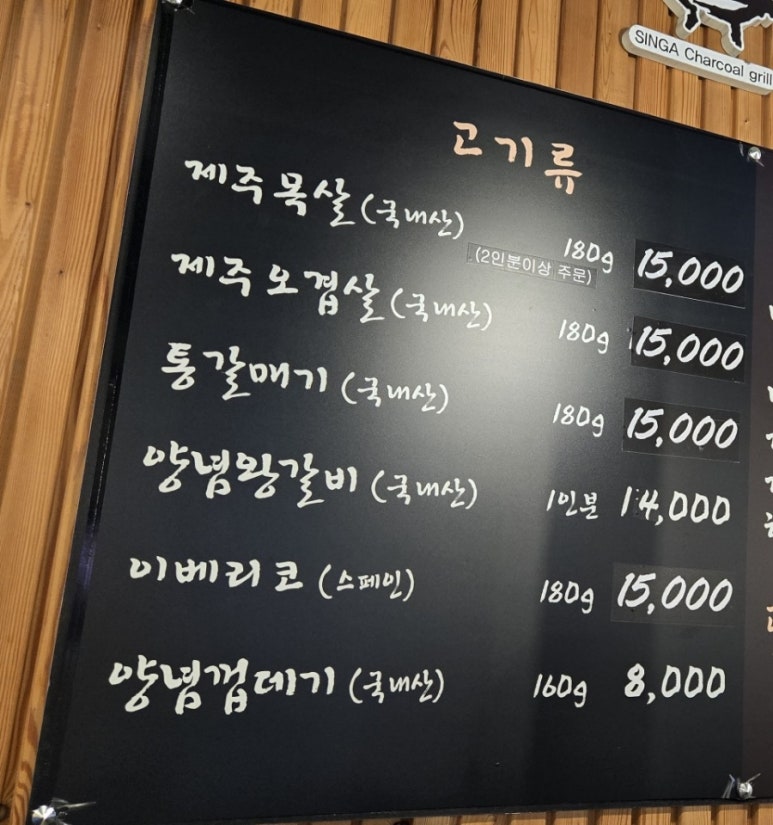 SINGA Charcoal grill
고기류
제주목살(국내산) 180g 15,000
(2인분이상 주문)
제주오겹살(국내산) 180g 15,000
통갈매기(국내산) 180g 15,000
양념왕갈비(국내산) 1인분 14,000
이베리코(스페인) 180g 15,000
양념껍데기(국내산) 160g 8,000